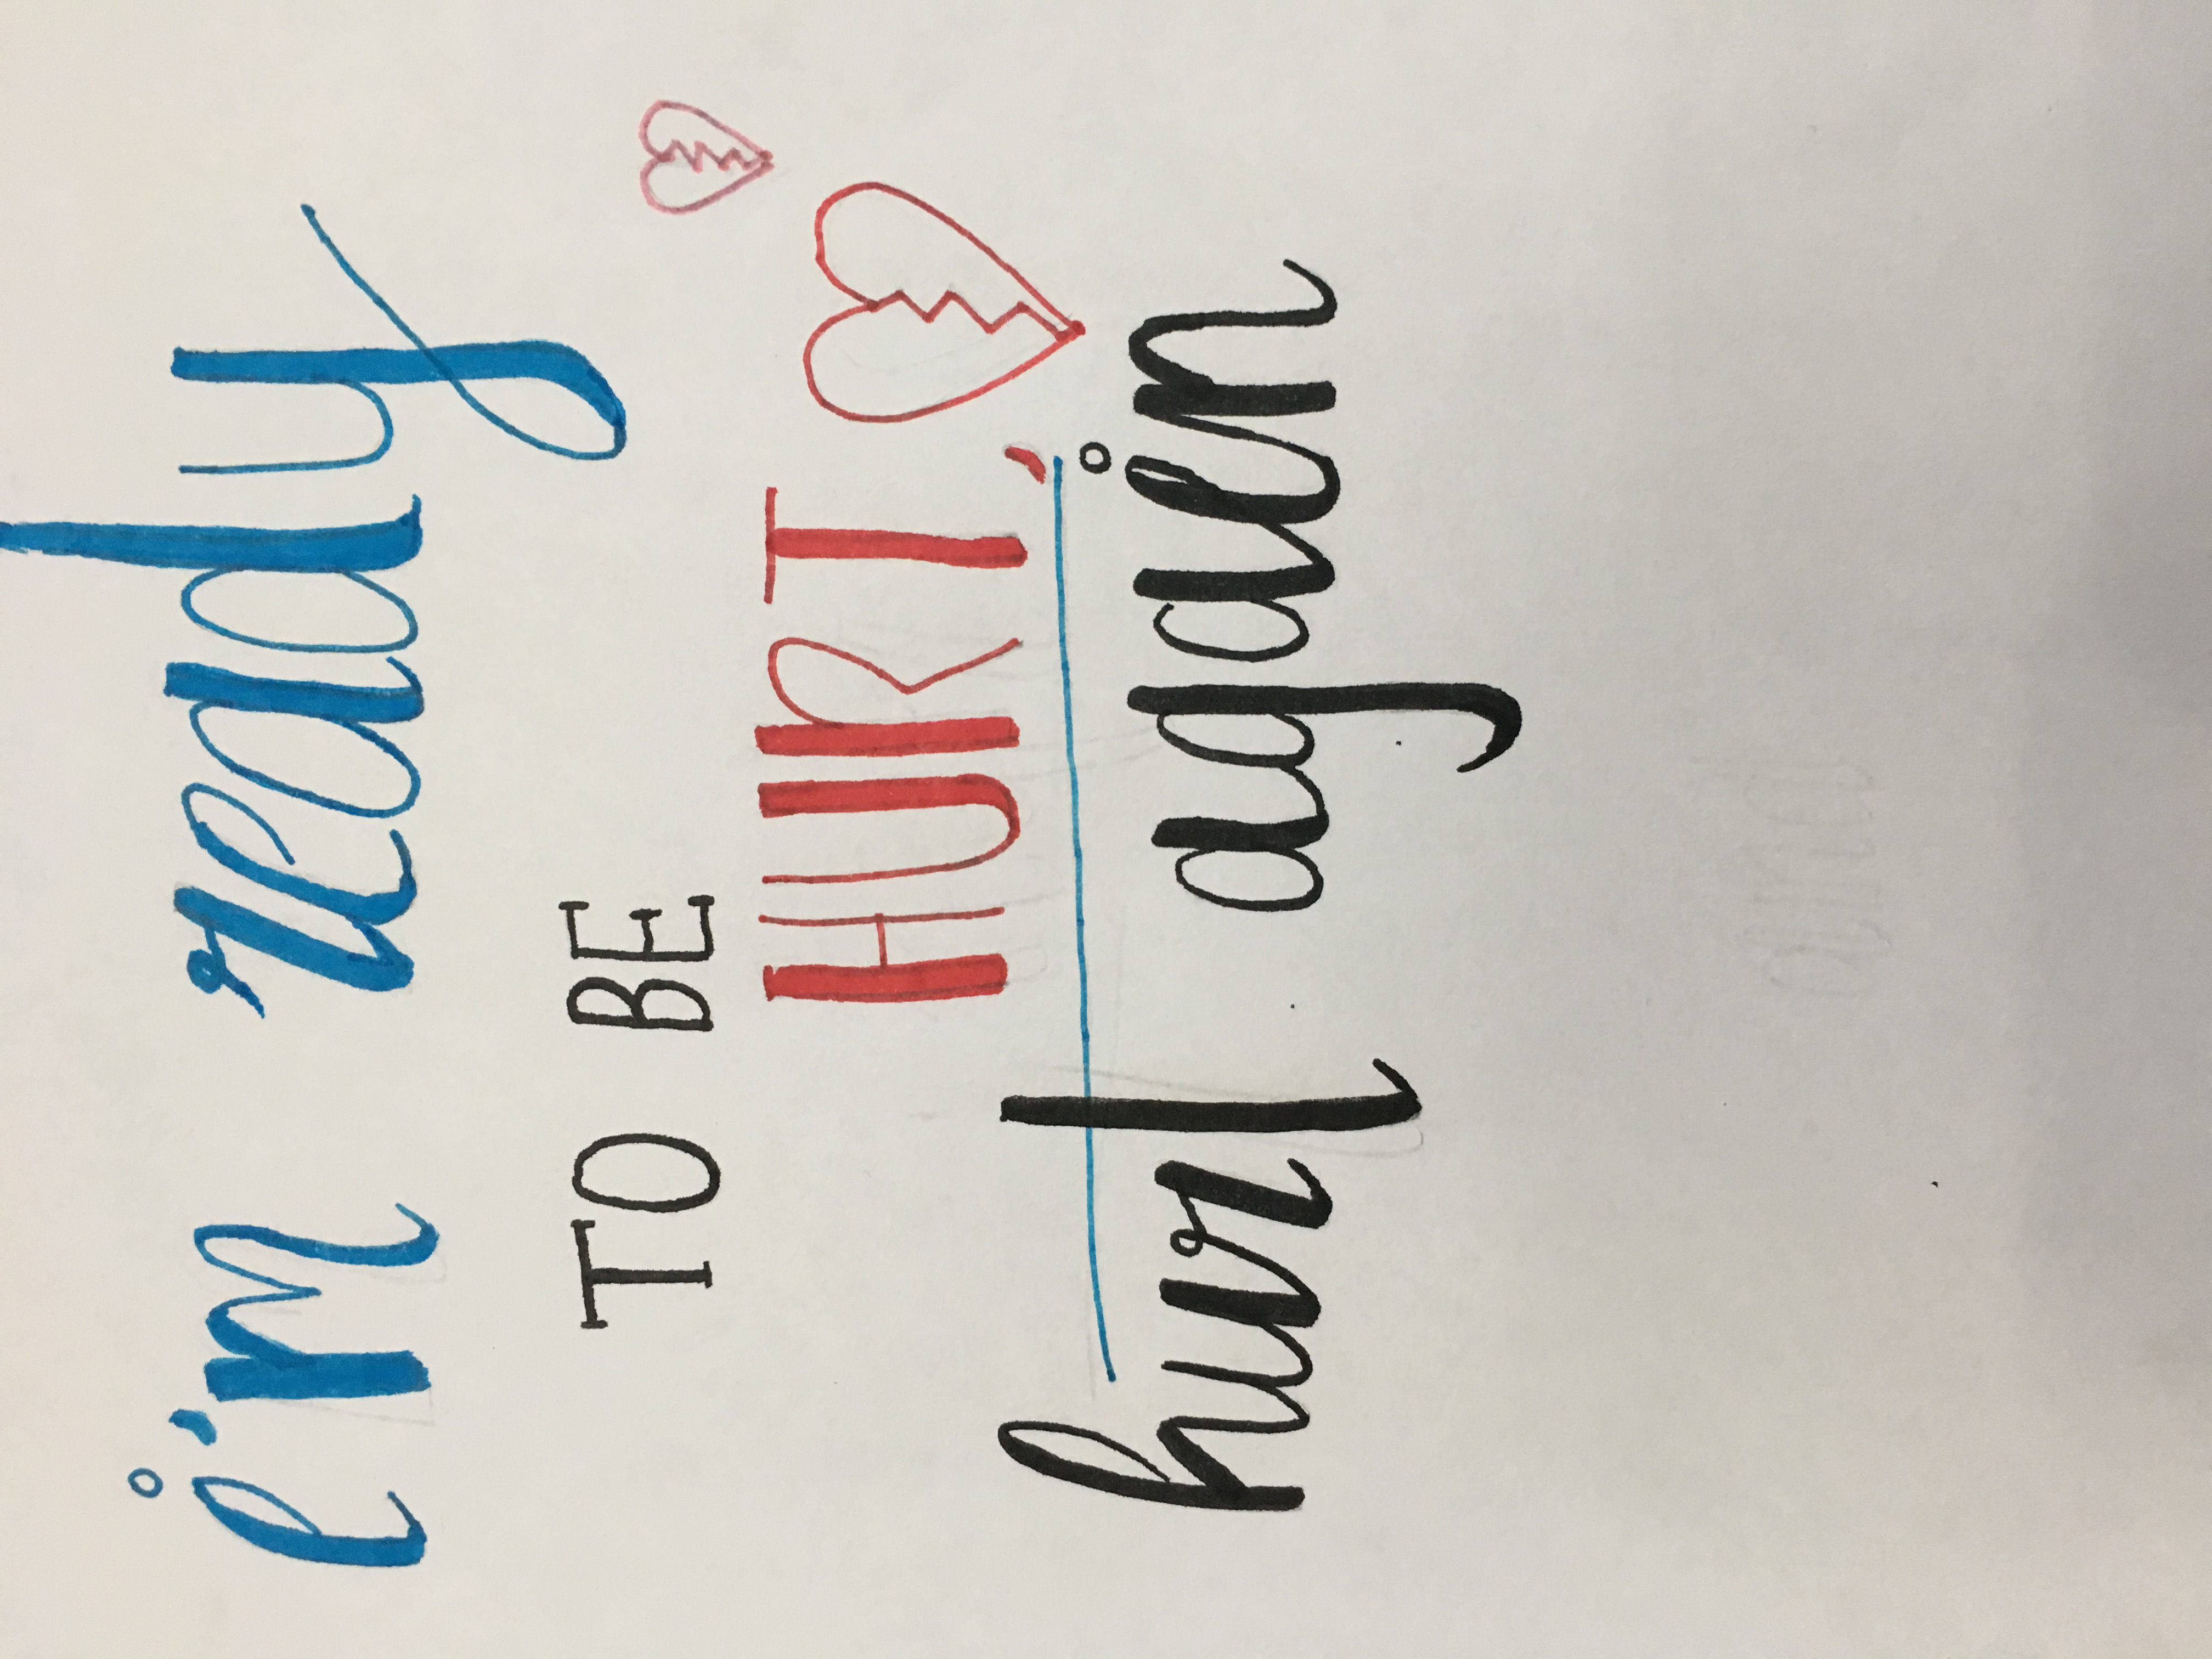 i'm ready
TO BE
HURT,
hurt again